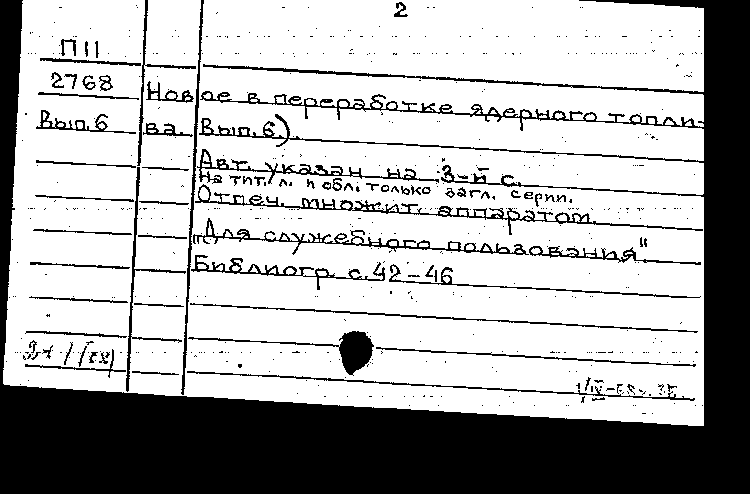 2
П11
2768
Новое в переработке ядерного топли-
Вып.6 ва. Вып.6).
Авт. указан на 3-й с.
На тит. л. и обл. только загл. серии.
Отпеч. множит. аппаратом.
"Для служебного пользования".
Библиогр. с. 42-46